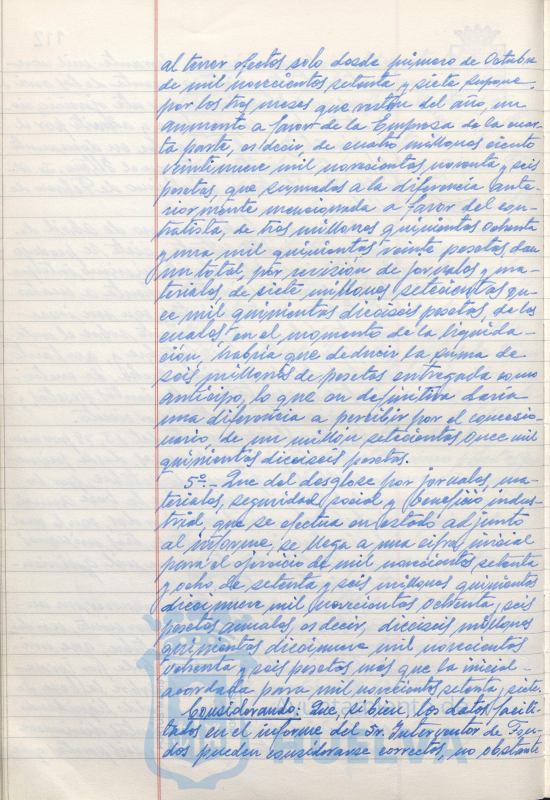 al tener efectos solo desde primero de Octubre
de mil novecientos setenta y siete supone,
por los tres meses que restan del año, un
aumento a favor de la Empresa de la cuar-
ta parte, es decir, de cuatro millones ciento
veintinueve mil novecientos noventa y seis
pesetas, que sumadas a la diferencia ante-
riormente mencionada a favor del con-
tratista, de tres millones quinientas ochenta
y una mil quinientas veinte pesetas, dan
un total, por revisión de jornales y ma-
teriales, de siete millones setecientas on-
ce mil quinientas dieciseis pesetas, de las
cuales en el momento de la liquida-
ción, habría que deducir la suma de
seis millones de pesetas entregada como
anticipo, lo que en definitiva daría
una diferencia a percibir por el concesio-
nario, de un millón setecientas once mil
quinientas dieciseis pesetas.
5º.- Que del desglose por jornales, ma-
teriales, seguridad social y beneficio indus-
trial, que se efectua en estado adjunto
al informe, se llega a una cifra inicial
para el ejercicio de mil novecientos setenta
y ocho de setenta y seis millones quinientas
diecinueve mil novecientas ochenta y seis
pesetas anuales, es decir, dieciseis millones
quinientas diecinueve mil novecientas
ochenta y seis pesetas más que la inicial
acordada para mil novecientos setenta y siete.
Considerando: Que, si bien los datos facili-
tados en el informe del Sr. Interventor de Fon-
dos pueden considerarse correctos, no obstante